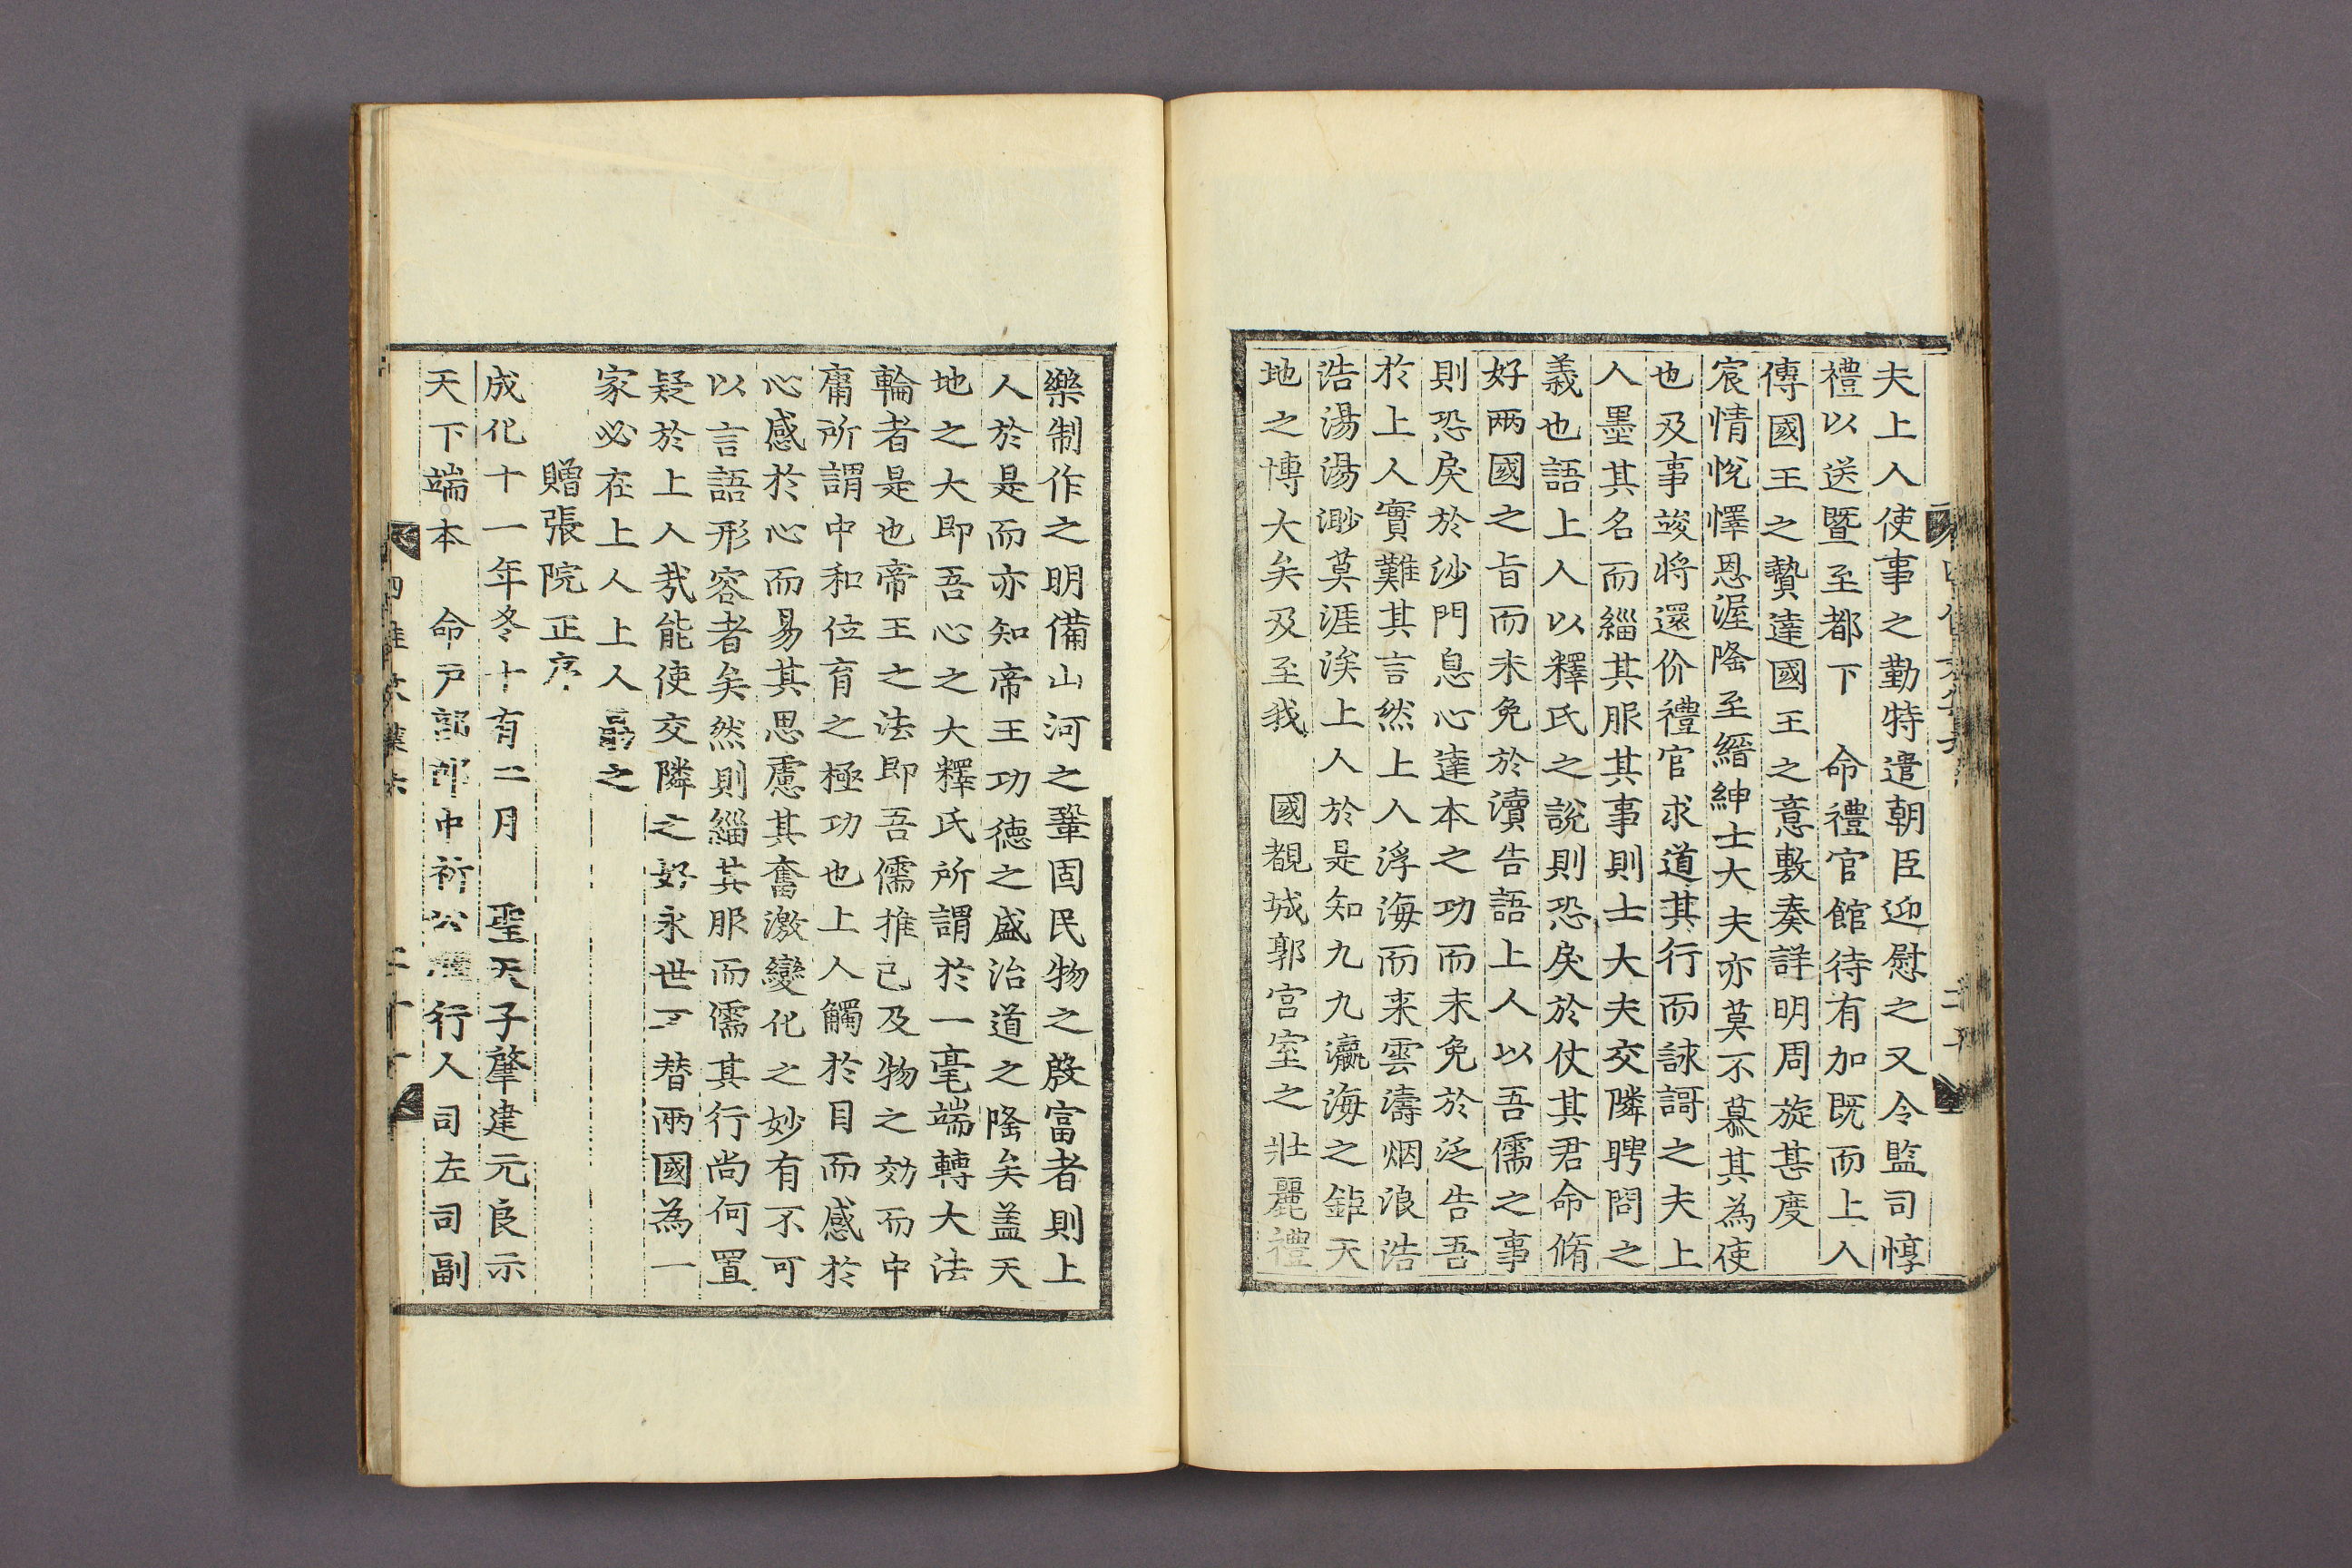 夫上人使事之勤特遣朝臣迎慰之又令監司惇
禮以送曁至都下　命禮官館待有加既而上人
傳國王之贄達國王之意敷奏詳明周旋甚度
宸情悅懌恩渥隆至縉紳士大夫亦莫不慕其為使
也及事竣將還价禮官求道其行而詠謌之夫上
人墨其名而緇其服其事則士大夫交隣聘問之
義也語上人以釋氏之說則恐戾於仗其君命脩
好兩國之旨而未免於瀆告語上人以吾儒之事
則恐戾於沙門息心達本之功而未免於泛告吾
於上人實難其言然上人浮海而来雲濤烟浪浩
浩湯湯渺莫涯涘上人於是知九九瀛海之鉅天
地之博大矣及至我　國覩城郭宮室之壯麗禮
樂制作之明備山河之鞏固民物之殷富者則上
人於是而亦知帝王功德之盛治道之隆矣盖天
地之大即吾心之大釋氏所謂於一毫端轉大法
輪者是也帝王之法即吾儒推己及物之効而中
庸所謂中和位育之極功也上人觸於目而感於
心感於心而易其思慮其奮激變化之妙有不可
以言語形容者矣然則緇其服而儒其行尚何置
疑於上人哉能使交隣之好永世不替兩國為一
家必在上人上人勗之
贈張院正序
成化十一年冬十有二月　聖天子肇建元良示
天下端本　命戶部郎中祈公　行人司左司副